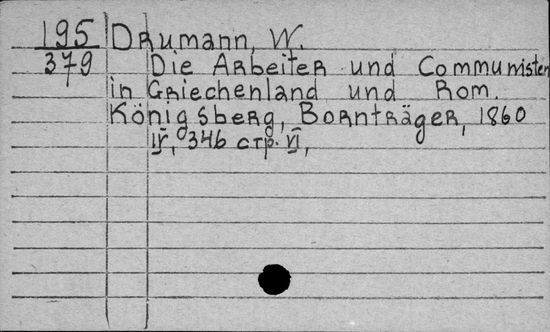 195 Drumann, W.
379 Die Arbeiter und Communisten
in Griechenland und Rom.
Königsberg, Bornträger, 1860
IV, 346 стр. VI,